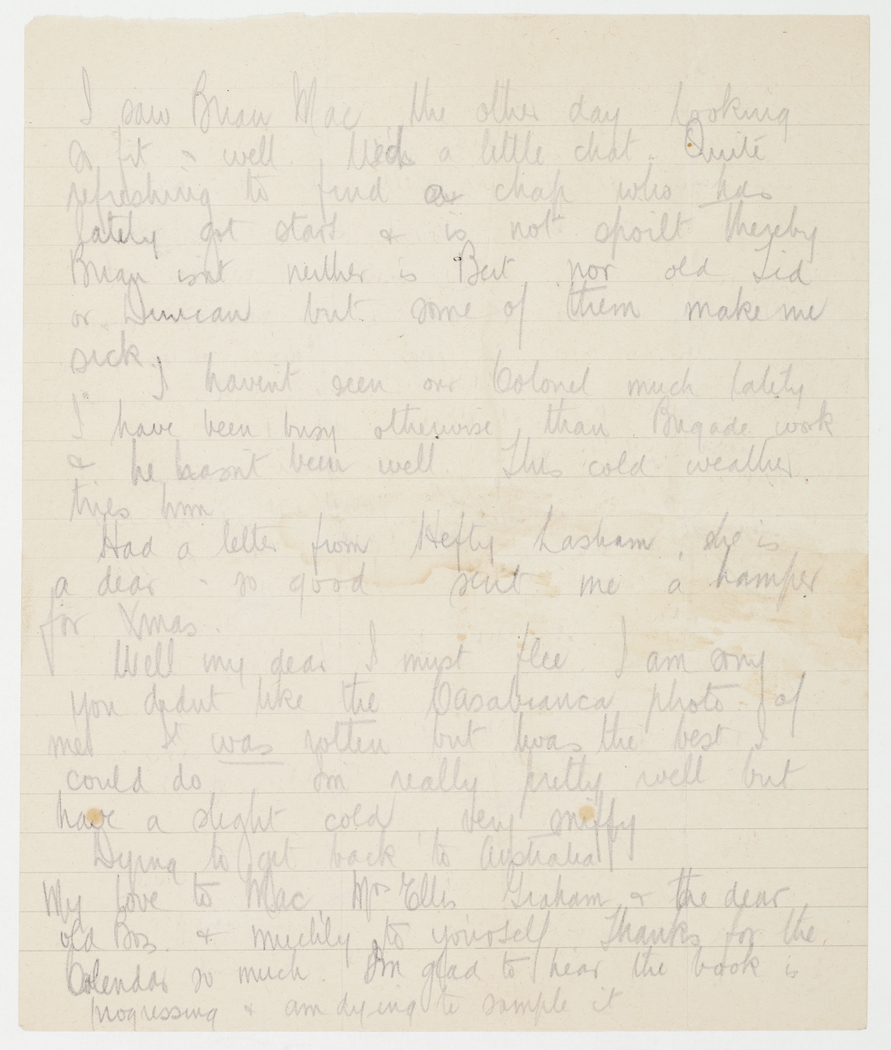 I saw Brian Mac the other day looking
so fit & well. We'd a little chat. Quite
refreshing to find a chap who has
lately got stars & is not spoilt thereby
Brian isnt neither is Bert nor old Sid
or Duncan but some of them make me
sick.
I havent seen our Colonel much lately
I have been busy otherwise than Brigade work
& he hasnt been well This cold weather
tries him
Had a letter from Hefty Lasham, she is
a dear - so good sent me a hamper
for Xmas.
Well my dear I must flee I am sorry
you didnt like the Casabianca photo of
me It was rotten but twas the best I
could do I'm really pretty well but
have a slight cold very sniffy
Dying to get back to Australia
My love to Mac Mrs Ellis Graham & the dear
old Bos. & muchly to yourself Thanks for the
Calendar so much. I'm glad to hear the book is
progressing & am dying to sample it